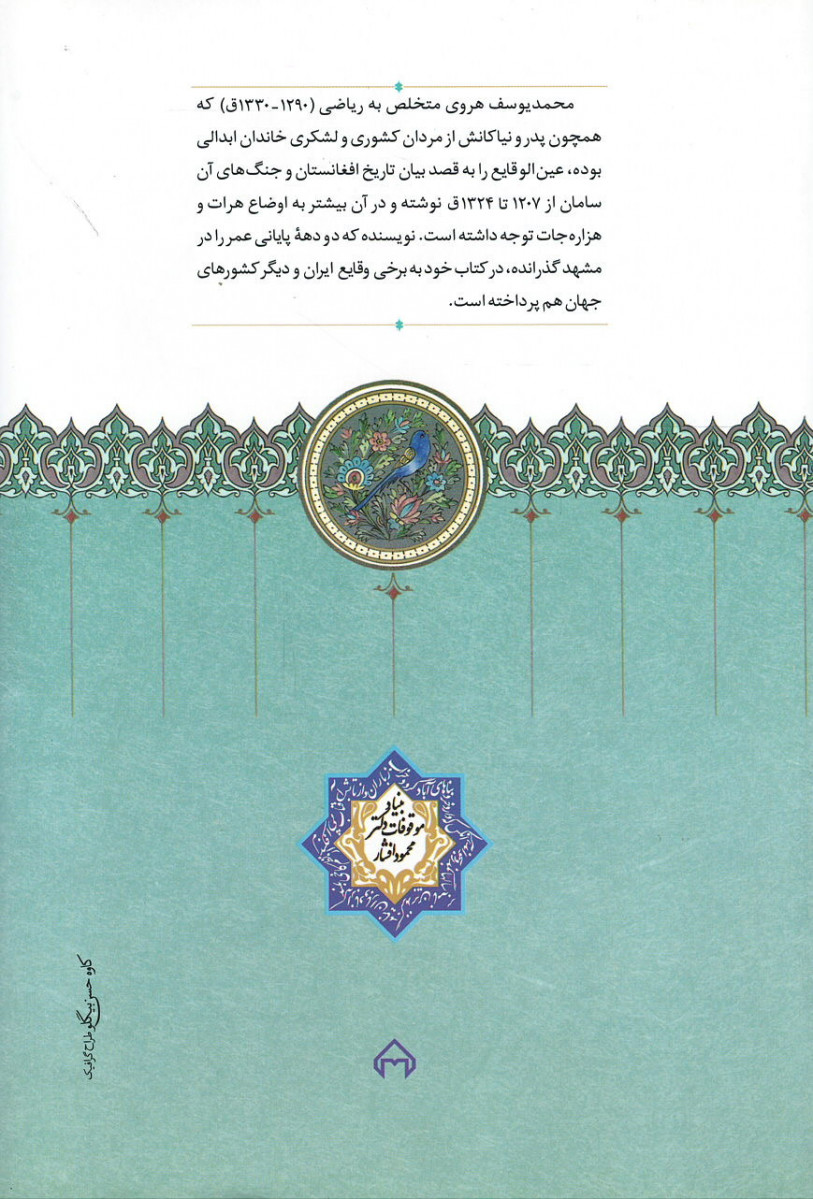 محمدیوسف هروی متخلص به ریاضی (۱۲۹۰-۱۳۳۰ق) که
همچون پدر و نیاکانش از مردان کشوری و لشکری خاندان ابدالی
بوده، عین‌الوقایع را به قصد بیان تاریخ افغانستان و جنگ‌های آن
سامان از ۱۲۰۷ تا ۱۳۲۴ق نوشته و در آن بیشتر به اوضاع هرات و
هزاره‌جات توجه داشته است. نویسنده که دو دههٔ پایانی عمر را در
مشهد گذرانده، در کتاب خود به برخی وقایع ایران و دیگر کشورهای
جهان هم پرداخته است.
بنیاد
موقوفات دکتر
محمود افشار
کاوه حسن بیگلو طراح گرافیک